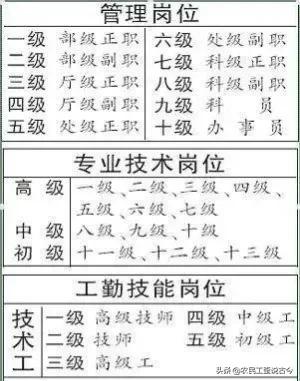 管理岗位
一级 部级正职 六级 处级副职
二级 部级副职 七级 科级正职
三级 厅级正职 八级 科级副职
四级 厅级副职 九级 科员
五级 处级正职 十级 办事员
专业技术岗位
高级 一级、二级、三级、四级、
五级、六级、七级
中级 八级、九级、十级
初级 十一级、十二级、十三级
工勤技能岗位
技术工
一级 高级技师 四级 中级工
二级 技师 五级 初级工
三级 高级工
头条@农民工重说古今